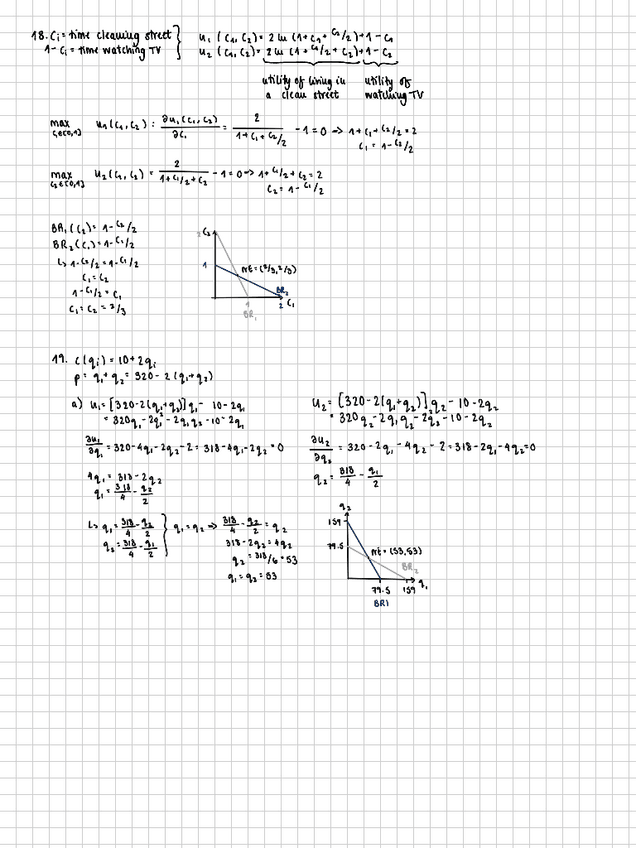 18. Ci = time cleaning street
1 - Ci = time watching TV
u1 (C1, C2) = 2 ln (1 + C1 + C2/2) + 1 - C1
u2 (C1, C2) = 2 ln (1 + C1/2 + C2) + 1 - C2
utility of living in a clean street
utility of watching TV
max C1∈[0,1] u1(C1, C2) : ∂u1(C1, C2)/∂C1 = 2/(1 + C1 + C2/2) - 1 = 0 => 1 + C1 + C2/2 = 2
C1 = 1 - C2/2
max C2∈[0,1] u2(C1, C2) = 2/(1 + C1/2 + C2) - 1 = 0 => 1 + C1/2 + C2 = 2
C2 = 1 - C1/2
BR1(C2) = 1 - C2/2
BR2(C1) = 1 - C1/2
↳ 1 - C2/2 = 1 - C1/2
C1 = C2
1 - C1/2 = C1
C1 = C2 = 2/3
2 C2
1
NE = (2/3, 2/3)
BR2
1 2 C1
BR1
19. C(qi) = 10 + 2qi
p = q1 + q2 = 320 - 2(q1 + q2)
a) u1 = [320 - 2(q1 + q2)] q1 - 10 - 2q1
= 320q1 - 2q1² - 2q1q2 - 10 - 2q1
∂u1/∂q1 = 320 - 4q1 - 2q2 - 2 = 318 - 4q1 - 2q2 = 0
4q1 = 318 - 2q2
q1 = 318/4 - q2/2
u2 = [320 - 2(q1 + q2)] q2 - 10 - 2q2
= 320q2 - 2q1q2 - 2q2² - 10 - 2q2
∂u2/∂q2 = 320 - 2q1 - 4q2 - 2 = 318 - 2q1 - 4q2 = 0
q2 = 318/4 - q1/2
↳ q1 = 318/4 - q2/2
q2 = 318/4 - q1/2
q1 = q2 => 318/4 - q2/2 = q2
318 - 2q2 = 4q2
q2 = 318/6 = 53
q1 = q2 = 53
q2
159
79.5
NE = (53, 53)
BR2
79.5 159 q1
BR1